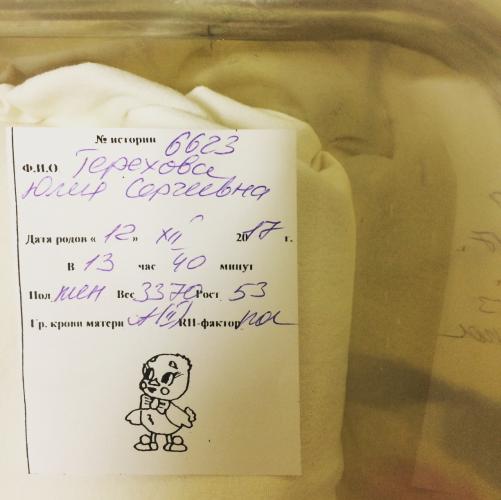 № истории 6623
Ф.И.О Терехова
Юлия Сергеевна
Дата родов « 12 » XII 2017 г.
В 13 час 40 минут
Пол жен Вес 3370 Рост 53
Гр. крови матери A(II) RH-фактор пол